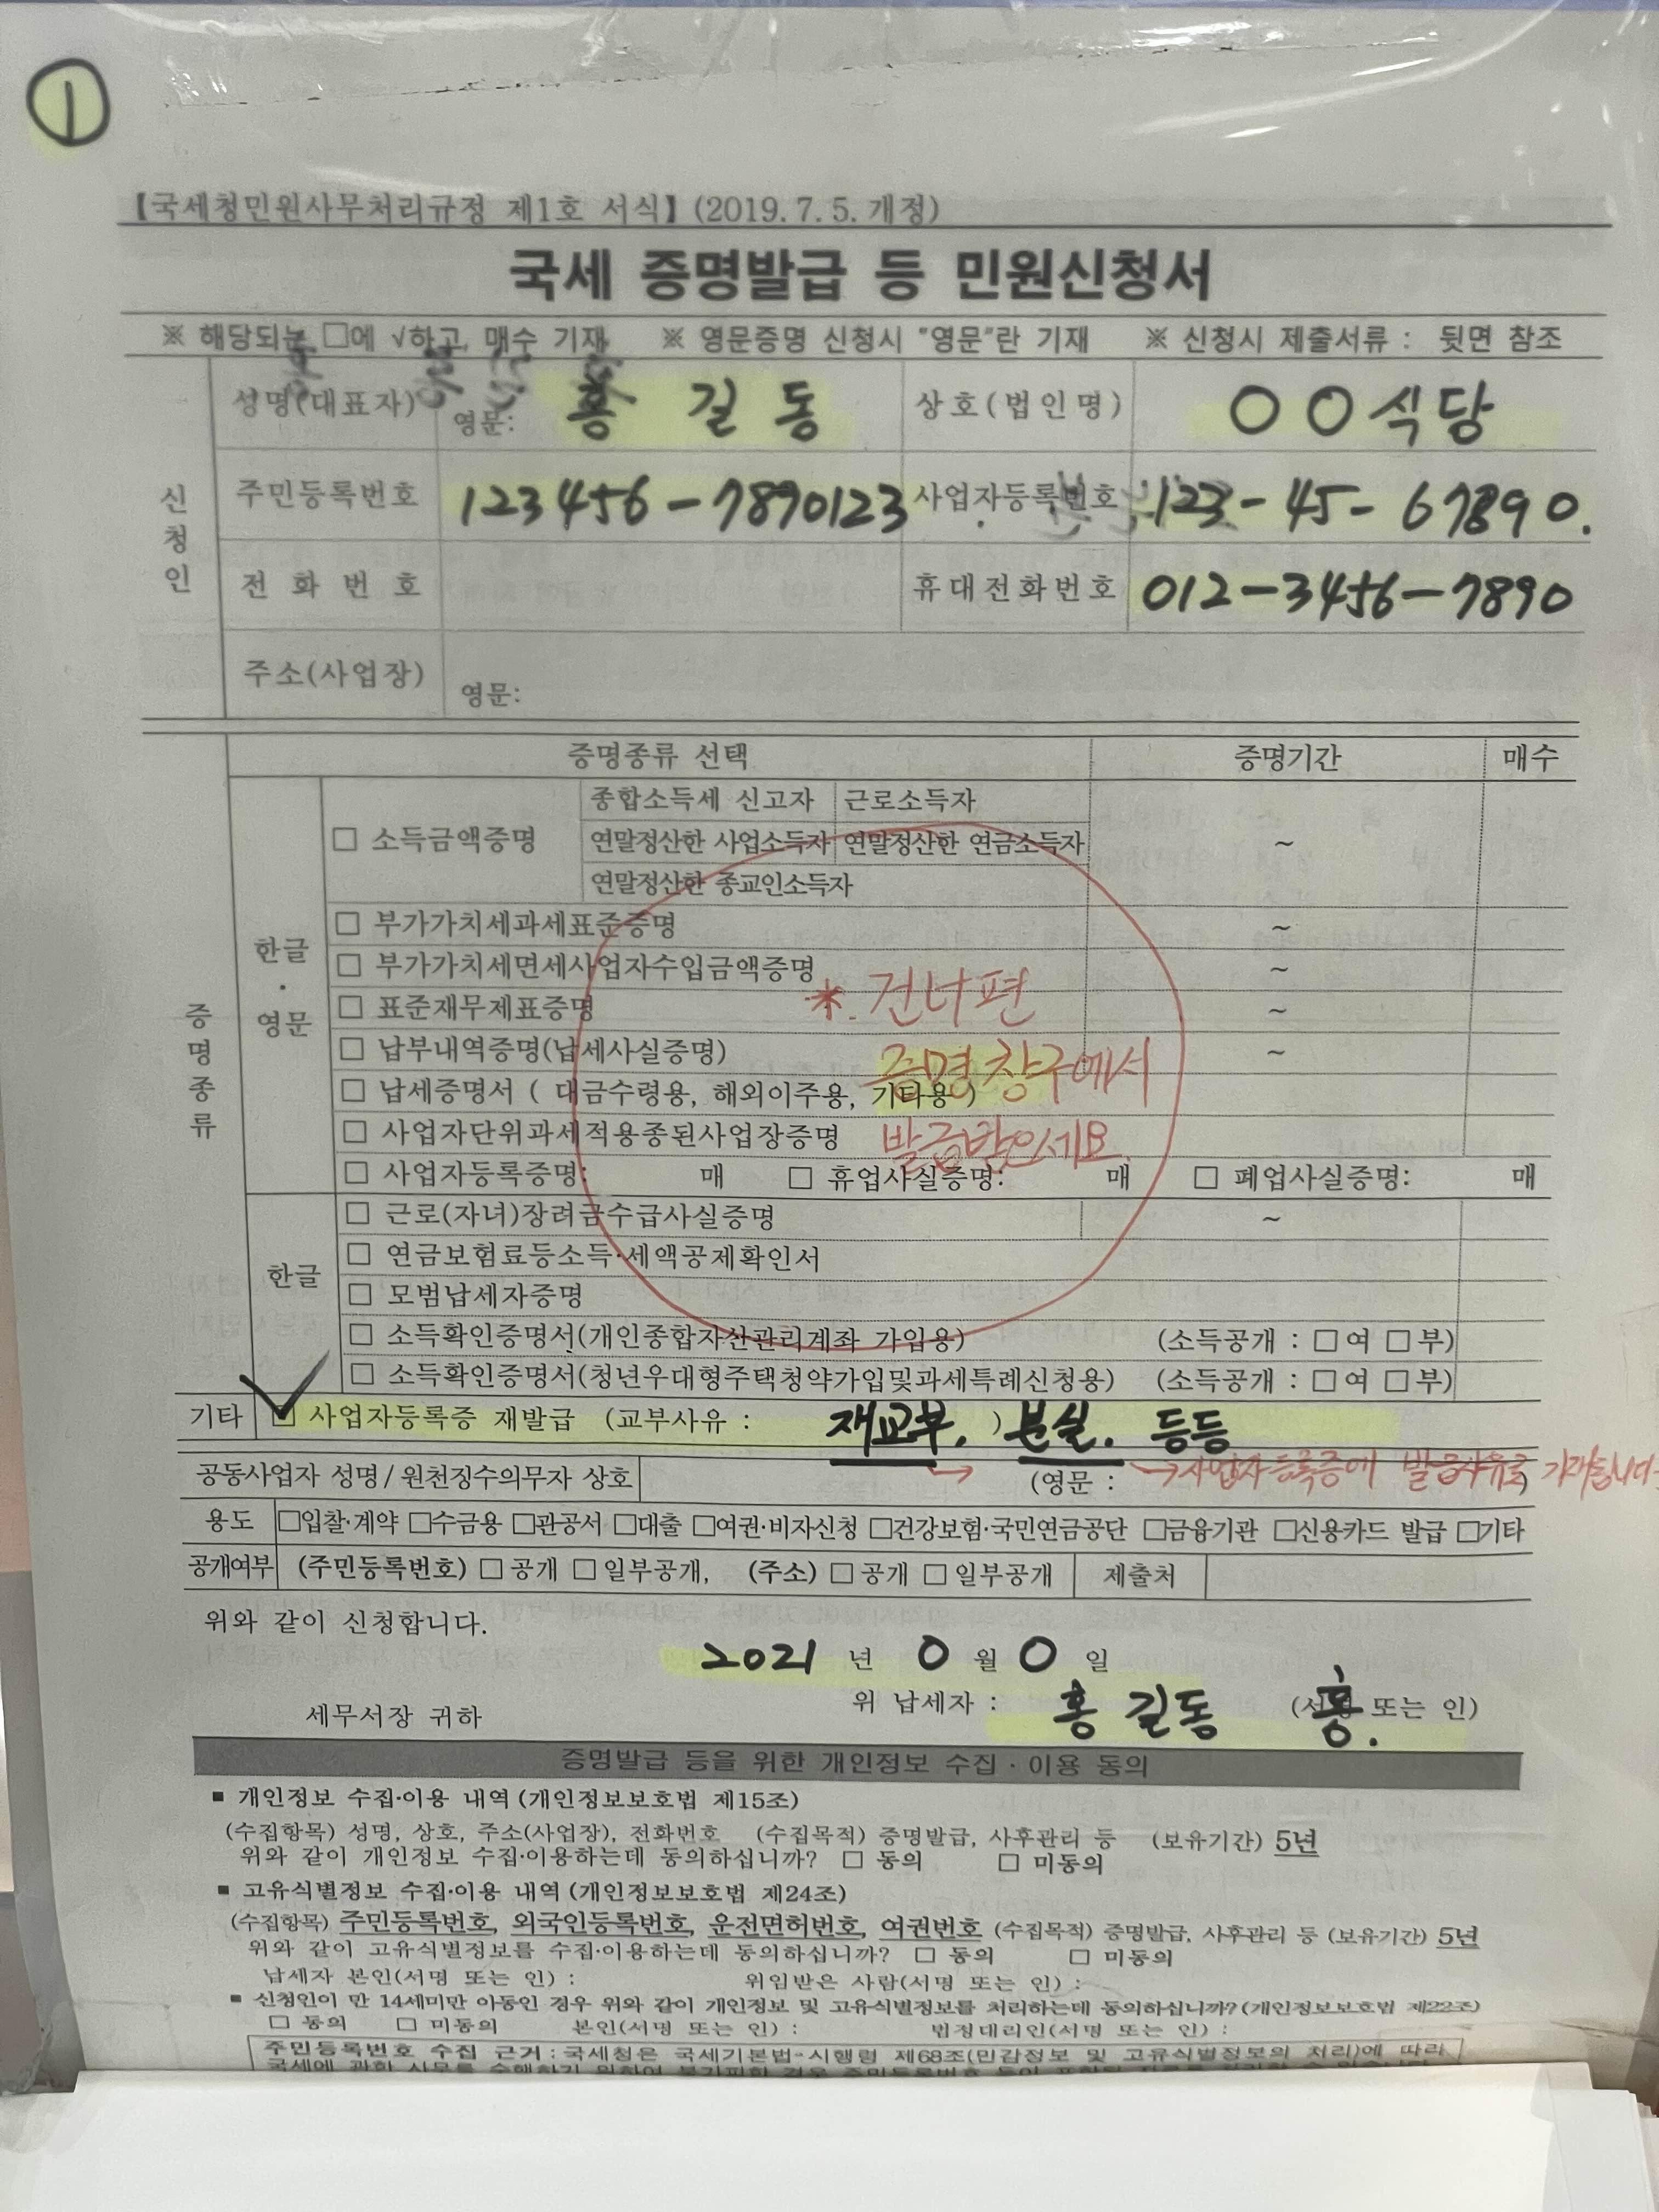 ①
【국세청민원사무처리규정 제1호 서식】(2019.7.5.개정)
국세 증명발급 등 민원신청서
※ 해당되는 □에 √하고, 매수 기재 ※ 영문증명 신청시 "영문"란 기재 ※ 신청시 제출서류 : 뒷면 참조
신청인
성명(대표자) 영문: 홍 길 동 상호(법인명) ○○식당
주민등록번호 123456-7890123 사업자등록번호 123-45-67890.
전 화 번 호 휴대전화번호 012-3456-7890
주소(사업장) 영문:
증명종류
증명종류 선택 증명기간 매수
한글·영문
□ 소득금액증명 종합소득세 신고자 근로소득자
연말정산한 사업소득자 연말정산한 연금소득자 ~
연말정산한 종교인소득자
□ 부가가치세과세표준증명 ~
□ 부가가치세면세사업자수입금액증명 ~
□ 표준재무제표증명 ~
□ 납부내역증명(납세사실증명) ~
□ 납세증명서 ( 대금수령용, 해외이주용, 기타용 )
□ 사업자단위과세적용종된사업장증명
□ 사업자등록증명: 매 □ 휴업사실증명: 매 □ 폐업사실증명: 매
* 건너편
증명창구에서
발급받으세요.
한글
□ 근로(자녀)장려금수급사실증명 ~
□ 연금보험료등소득·세액공제확인서
□ 모범납세자증명
□ 소득확인증명서(개인종합자산관리계좌 가입용) (소득공개 : □여 □부)
□ 소득확인증명서(청년우대형주택청약가입및과세특례신청용) (소득공개 : □여 □부)
기타 ☑ 사업자등록증 재발급 (교부사유 : 재교부. ) 분실. 등등
→ → 사업자등록증에 발급사유로 기재됩니다
공동사업자 성명/원천징수의무자 상호 (영문 : )
용도 □입찰·계약 □수금용 □관공서 □대출 □여권·비자신청 □건강보험·국민연금공단 □금융기관 □신용카드 발급 □기타
공개여부 (주민등록번호) □ 공개 □ 일부공개, (주소) □ 공개 □ 일부공개 제출처
위와 같이 신청합니다.
2021 년 0 월 0 일
위 납세자 : 홍 길동 (서명 또는 인) 홍.
세무서장 귀하
증명발급 등을 위한 개인정보 수집·이용 동의
■ 개인정보 수집·이용 내역(개인정보보호법 제15조)
(수집항목) 성명, 상호, 주소(사업장), 전화번호 (수집목적) 증명발급, 사후관리 등 (보유기간) 5년
위와 같이 개인정보 수집·이용하는데 동의하십니까? □ 동의 □ 미동의
■ 고유식별정보 수집·이용 내역(개인정보보호법 제24조)
(수집항목) 주민등록번호, 외국인등록번호, 운전면허번호, 여권번호 (수집목적) 증명발급, 사후관리 등 (보유기간) 5년
위와 같이 고유식별정보를 수집·이용하는데 동의하십니까? □ 동의 □ 미동의
납세자 본인(서명 또는 인) : 위임받은 사람(서명 또는 인) :
■ 신청인이 만 14세미만 아동인 경우 위와 같이 개인정보 및 고유식별정보를 처리하는데 동의하십니까?(개인정보보호법 제22조)
□ 동의 □ 미동의 본인(서명 또는 인) : 법정대리인(서명 또는 인) :
주민등록번호 수집 근거 : 국세청은 국세기본법 시행령 제68조(민감정보 및 고유식별정보의 처리)에 따라
국세에 관한 사무를 수행하기 위하여 불가피한 경우 주민등록번호 등이 포함된 자료를